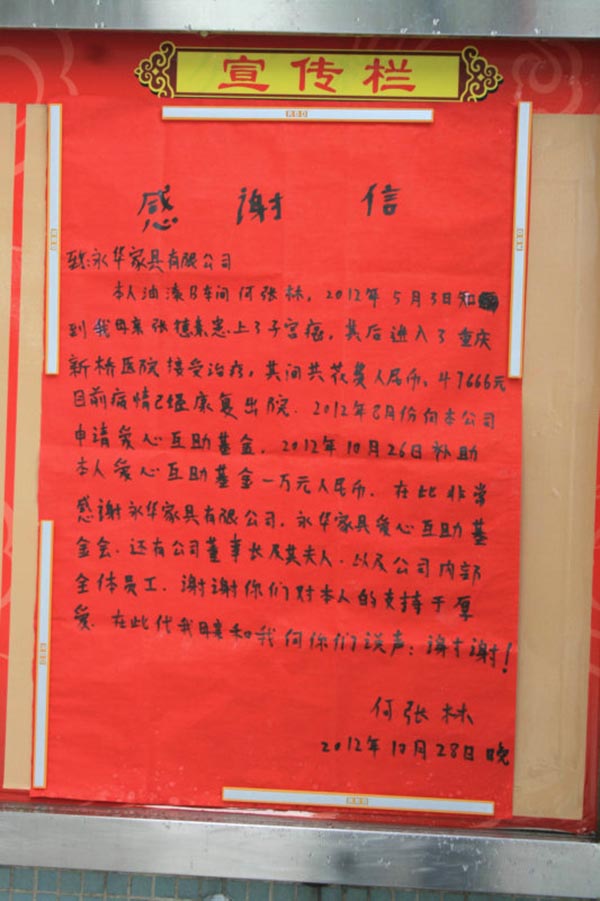 宣传栏
感谢信
致:永华家具有限公司
本人油漆B车间何张林,2012年5月3日知
到我母亲张穗素患上了子宫癌,其后进入了重庆
新桥医院接受治疗,其间共花费人民币:47666元
目前病情已经康复出院.2012年8月份向本公司
申请爱心互助基金,2012年10月26日补助
本人爱心互助基金一万元人民币.在此非常
感谢永华家具有限公司,永华家具爱心互助基
金会.还有公司董事长及其夫人.以及公司内部
全体员工.谢谢你们对本人的支持于厚
爱.在此代我母亲和我向你们说声:谢谢!
何张林
2012年10月28日晚